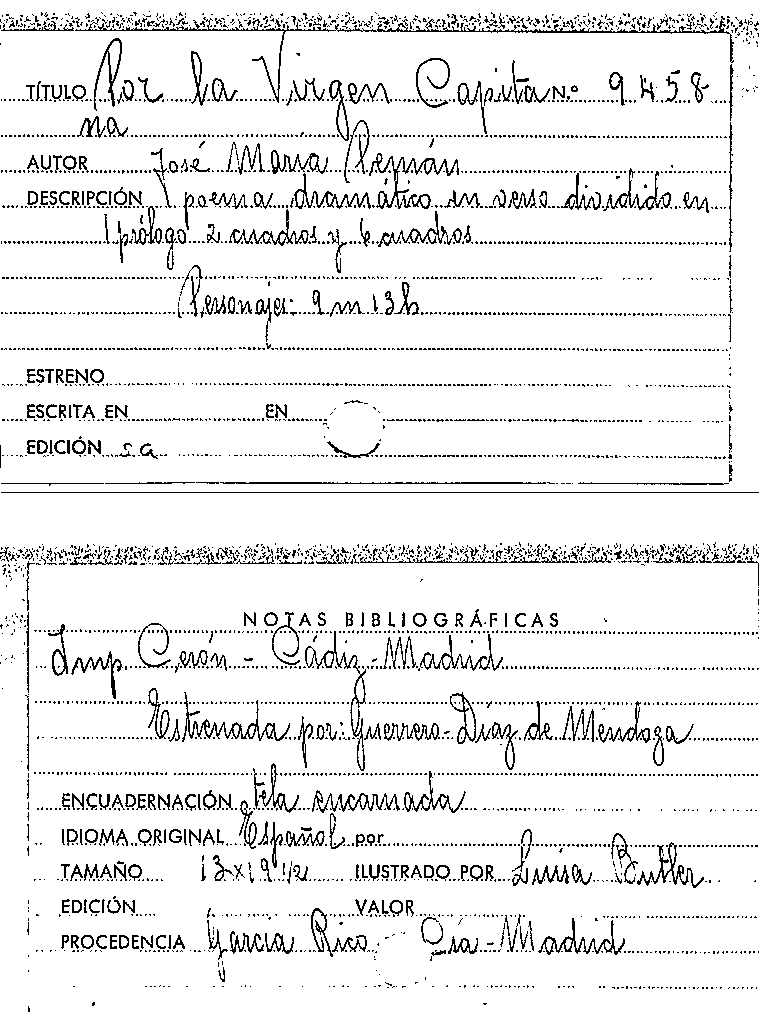 TÍTULO Por la Virgen Capita N.º 9458
na
AUTOR José María Pemán
DESCRIPCIÓN 1 poema dramático en verso dividido en
1 prólogo 2 cuadros y 6 cuadros
Personajes: 9 m 13 h
ESTRENO
ESCRITA EN EN
EDICIÓN s.a
NOTAS BIBLIOGRÁFICAS
Imp. Cerón - Cádiz - Madrid
Estrenada por: Guerrero - Díaz de Mendoza
ENCUADERNACIÓN tela encarnada
IDIOMA ORIGINAL Español por
TAMAÑO 13x19 1/2 ILUSTRADO POR Luisa Butler
EDICIÓN VALOR
PROCEDENCIA García Rico Cía - Madrid